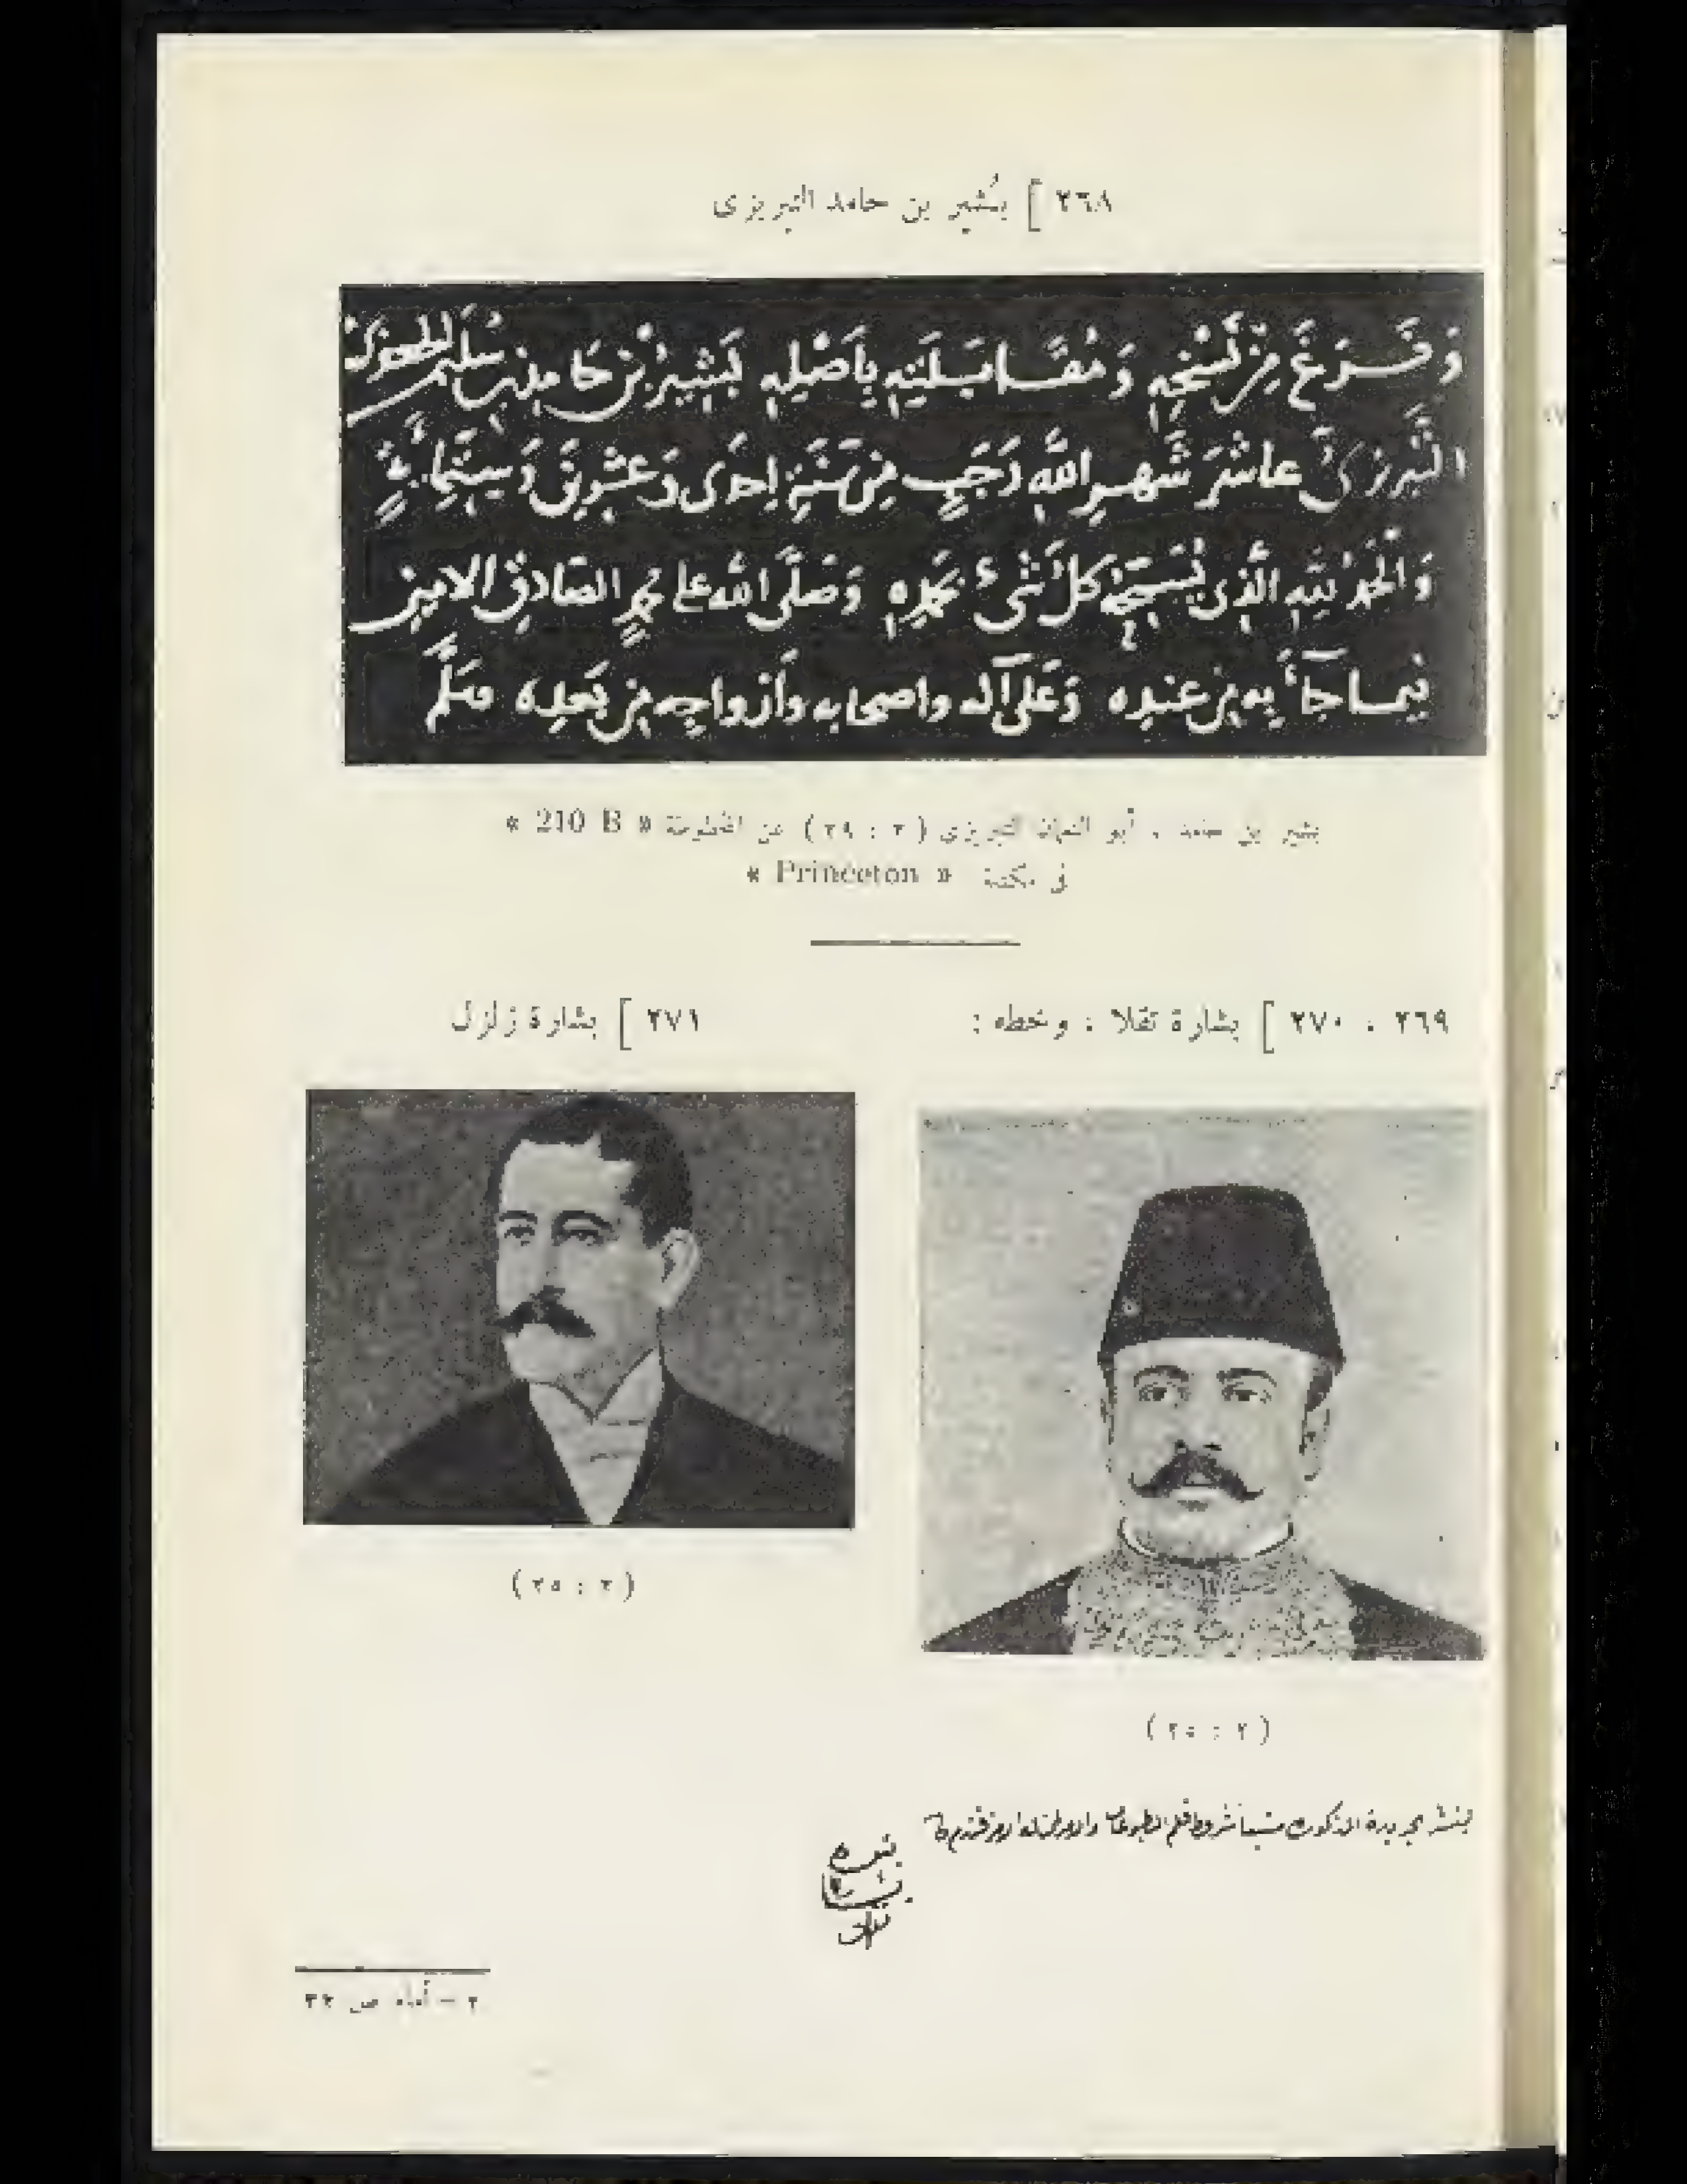 ٢٦٨ ] بُشير بن حامد التبريزى
وَفَرَغَ مِنْ نَسْخِهِ وَمُقَابَلَتِهِ بِأَصْلِهِ بَشِيرُ بْنُ حَامِدِ بْنِ سُلَيْمٰنَ
التَّبْرِزىُّ عاشرَ شَهرِ اللهِ رَجَبٍ مِنْ سَنَةِ إحْدَى وَعشرِينَ وَسِتِّمِائَةٍ
وَالحَمْدُ لِلّهِ الَّذِى يُسَبِّحُهُ كُلُّ شَىْءٍ بِحَمْدِهِ وَصَلَّى اللهُ عَلَى مُحَمَّدٍ الصَّادِقِ الامِينِ
فِيمَا جَاءَ بِهِ مِنْ عِنْدِهِ وَعَلَى آلِهِ واصحابِهِ وأزواجِهِ مِنْ بَعْدِهِ وَسَلَّمَ
بشير بن حامد ، أبو النعمان التبريزي ( ٢ : ٢٨ ) عن المخطوطة « 210 B »
في مكتبة « Princeton »
٢٦٩ ، ٢٧٠ ] بشارة تقلا ، وخطه :
٢٧١ ] بشارة زلزل
( ٢ : ٢٥ )
( ٢ : ٢٥ )
بشاره
٢ – أمام ص ٣٢